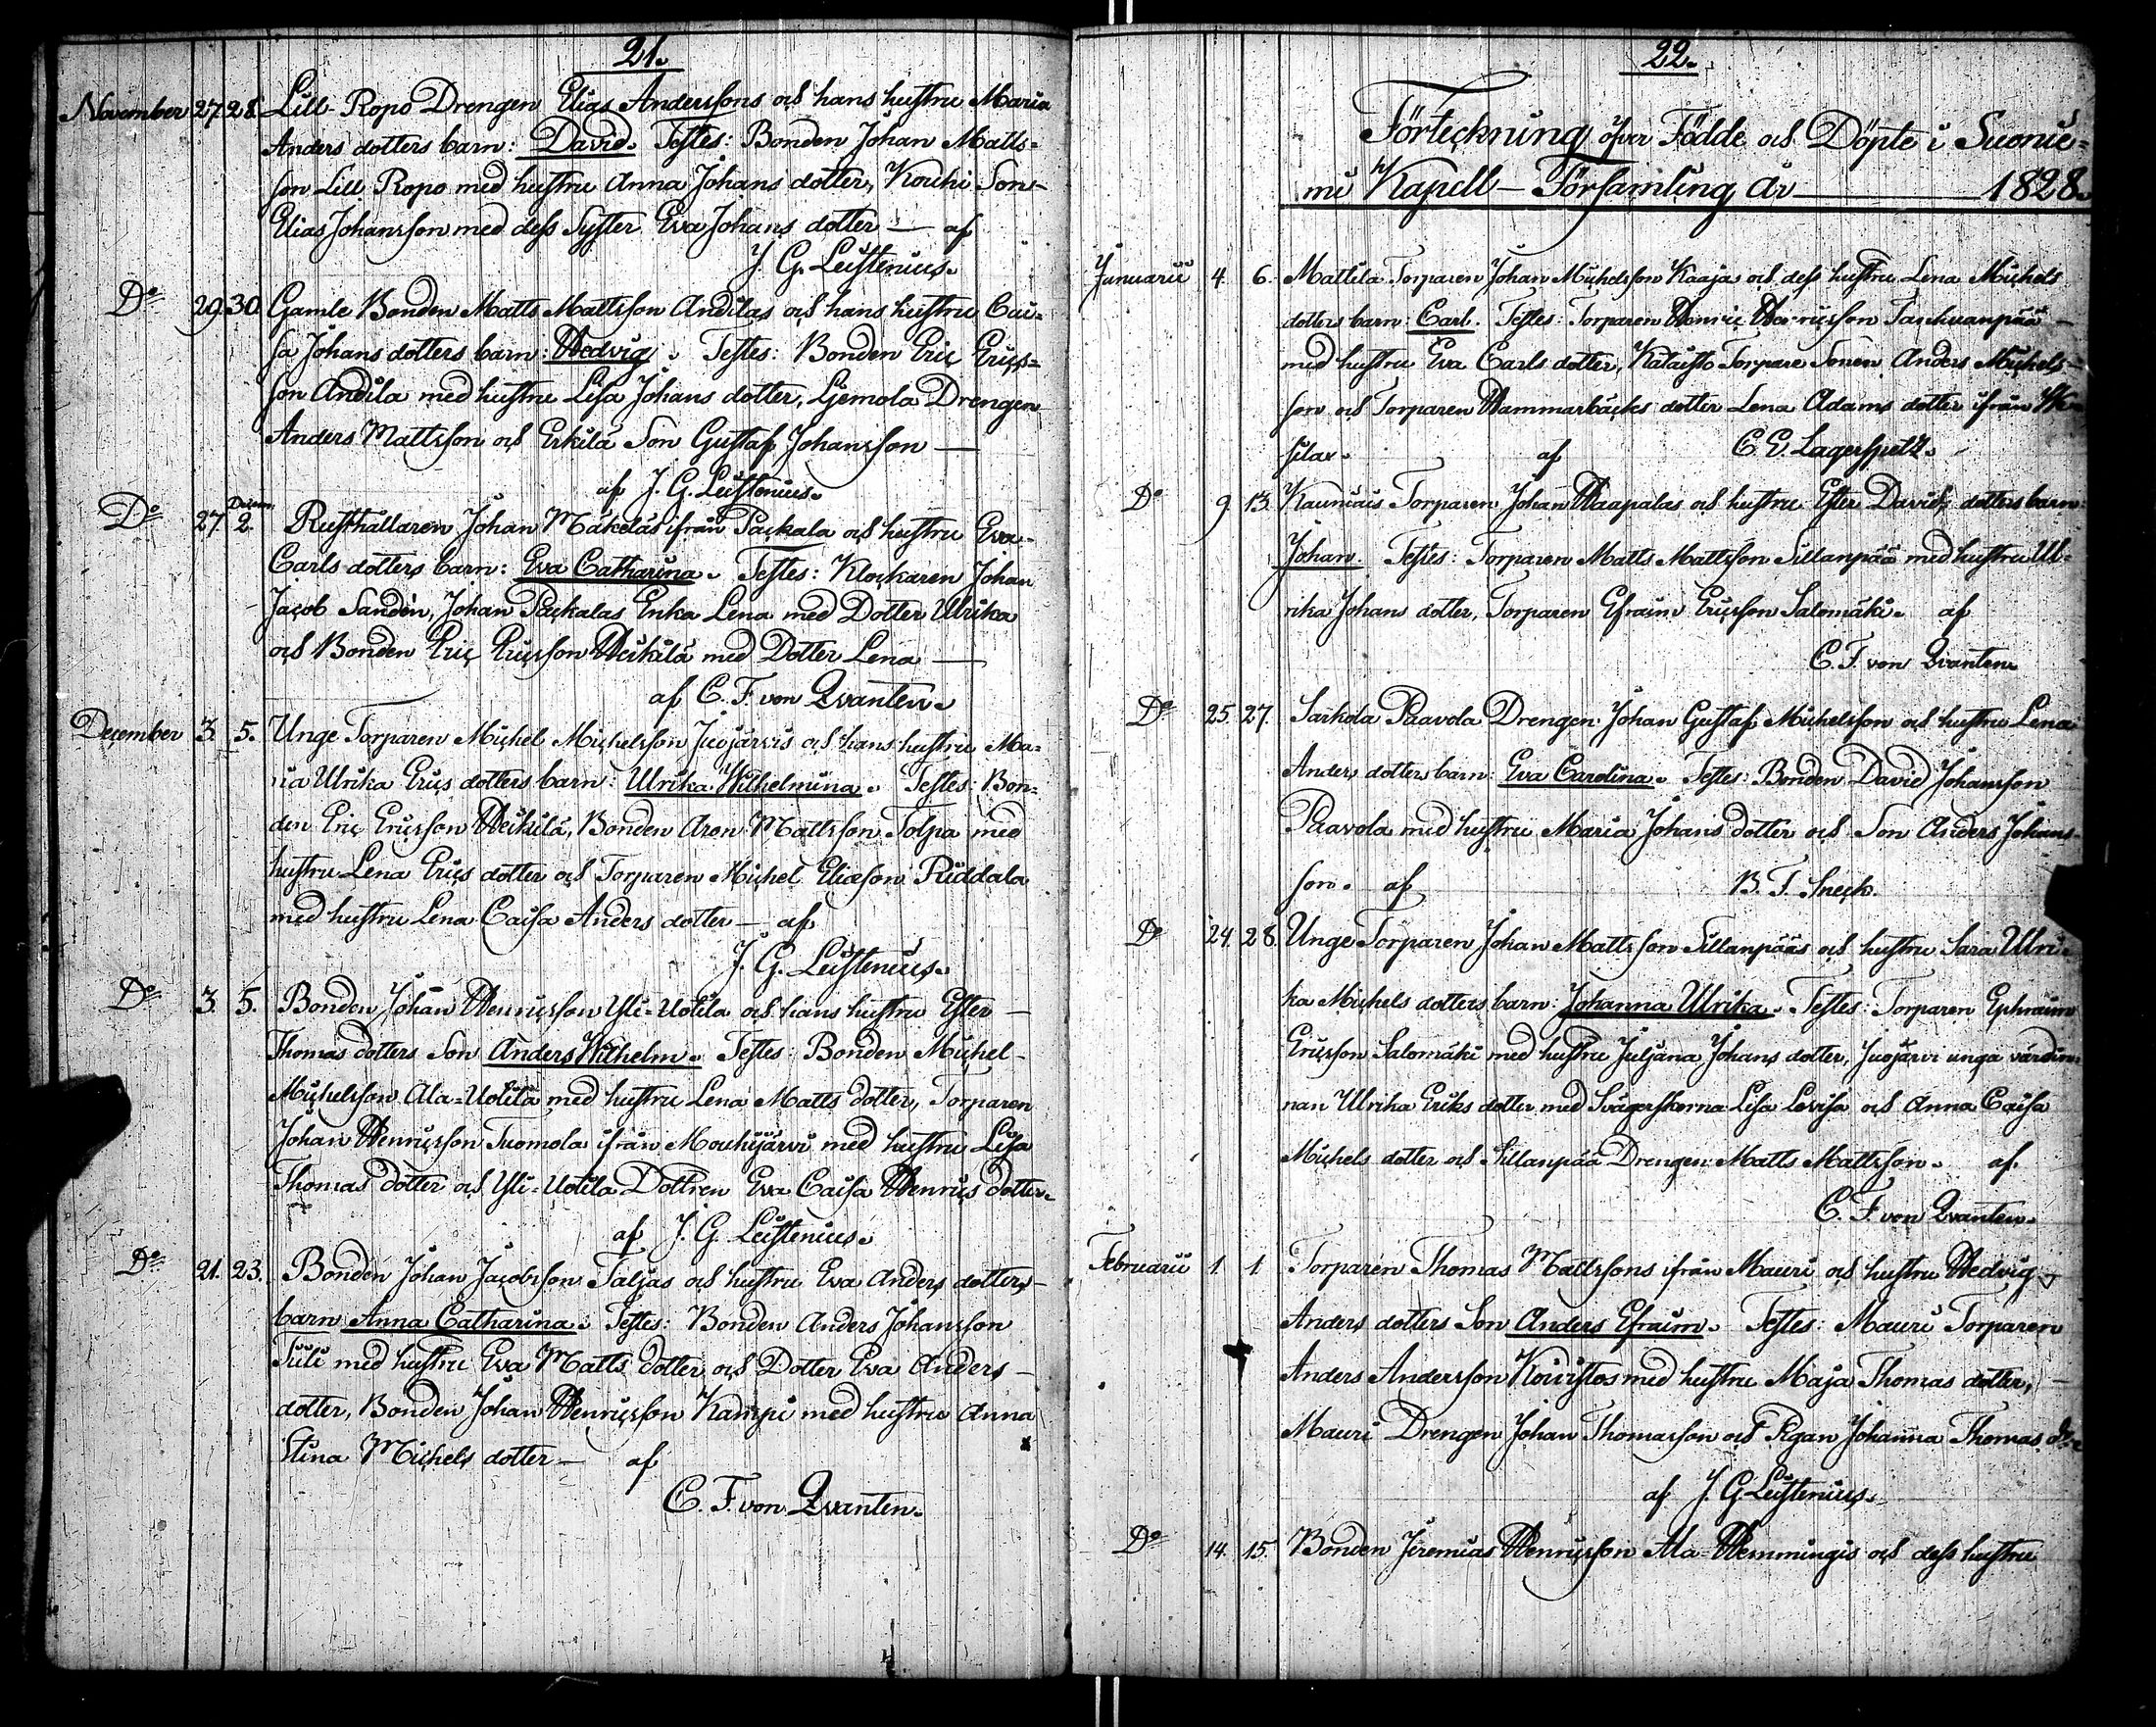 21.
November 27. 28. Lill-Ropo Drengen Elias Anderssons och hans hustru Maria
Anders dotters barn: David. Testes: Bonden Johan Matts-
son Lill Ropo med hustru Anna Johans dotter, Kouhi Son
Elias Johansson med dess Syster Eva Johans dotter — af
J. G. Leistenius.
Do 29. 30. Gamle Bonden Matts Mattsson Andilas och hans hustru Cai-
sa Johans dotters barn: Hedvig. Testes: Bonden Eric Erics-
son Andila med hustru Lisa Johans dotter, Ljemola Drengen
Anders Mattsson och Erkilä Son Gustaf Johansson —
af J. G. Leistenius.
Do 27. Decem. 2. Rusthållaren Johan Mäkeläs ifrån Packala och hustru Eva
Carls dotters barn: Eva Catharina. Testes: Klockaren Johan
Jacob Sandén, Johan Packalas Enka Lena med Dotter Ulrika
och Bonden Eric Ericsson Heikilä med Dotter Lena —
af C. F. von Qvanten.
December 3. 5. Unge Torparen Michel Michelsson Juojärvis och hans hustru Ma-
ria Ulrika Erics dotters barn: Ulrika Wilhelmina. Testes: Bon-
den Eric Ericsson Heikilä, Bonden Aron Mattsson Tolpa med
hustru Lena Erics dotter och Torparen Michel Eliæson Riddala
med hustru Lena Caisa Anders dotter — af
J. G. Leistenius.
Do 3. 5. Bonden Johan Henricsson Yli-Uotila och hans hustru Ester —
Thomas dotters Son Anders Wilhelm. Testes: Bonden Michel
Michelsson Ala-Uotila med hustru Lena Matts dotter, Torparen
Johan Henricsson Tuomola ifrån Mouhijärvi med hustru Lisa
Thomas dotter och Yli-Uotila Dottren Eva Caisa Henrics dotter.
af J. G. Leistenius.
Do 21. 23. Bonden Johan Jacobsson Taljas och hustru Eva Anders dotters
barn Anna Catharina. Testes: Bonden Anders Johansson
Tuli med hustru Eva Matts dotter och Dotter Eva Anders
dotter, Bonden Johan Henricsson Kamppi med hustru Anna
Stina Michels dotter — af
C. F. von Qvanten.
22.
Förteckning öfver Födde och Döpte i Suonie-
mi Kapell-Församling År — 1828.
Januarii 4. 6. Mattila Torparen Johan Michelsson Kaajas och dess hustru Lena Michels
dotters barn: Carl. Testes: Torparen Henric Henricsson Tarhvanpää
med hustru Eva Carls dotter, Kataisto Torpare Sonen Anders Michels-
son och Torparen Hammarbäcks dotter Lena Adams dotter ifrån
silax. af C. E. Lagerspetz.
Do 9. 13. Kauniais Torparen Johan Haapalas och hustru Ester Davids dotters barn
Johan. Testes: Torparen Matts Mattsson Sillanpää med hustru Ul-
rika Johans dotter, Torparen Efraim Ericsson Salomäki. af
C. F. von Qvanten.
Do 25. 27. Sarkola Paavola Drengen Johan Gustaf Michelsson och hustru Lena
Anders dotters barn: Eva Carolina. Testes: Bonden David Johansson
Paavola med hustru Maria Johans dotter och Son Anders Johans-
son. af B. T. Sneck.
Do 24. 28. Unge Torparen Johan Mattsson Sillanpääs och hustru Sara Ulri-
ka Michels dotters barn: Johanna Ulrika. Testes: Torparen Ephraim
Ericsson Salomäki med hustru Juljana Johans dotter, Juojärvi unga värdin-
nan Ulrika Eriks dotter med Svägerskorna Lisa Lovisa och Anna Caisa
Michels dotter och Sillanpää Drengen Matts Mattsson. af
C. F. von Qvanten.
Februarii 1. 1. Torparen Thomas Mattssons ifrån Mauri och hustru Hedvig
Anders dotters Son Anders Efraim. Testes: Mauri Torparen
Anders Andersson Koivistos med hustru Maja Thomas dotter,
Mauri Drengen Johan Thomasson och Pigan Johanna Thomas
af J. G. Leistenius.
Do 14. 15. Bonden Jeremias Henricsson Ala-Hemmingis och dess hustru